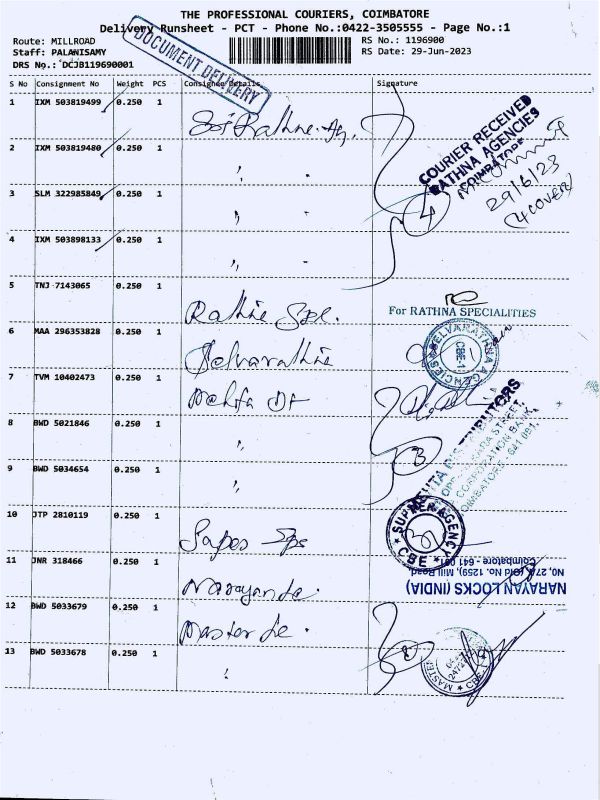 THE PROFESSIONAL COURIERS, COIMBATORE
Delivery Runsheet - PCT - Phone No.:0422-3505555 - Page No.:1
Route: MILLROAD
RS No.: 1196900
Staff: PALANISAMY
RS Date: 29-Jun-2023
DRS No.: DCJB119690001
DOCUMENT DELIVERY
S No Consignment No Weight PCS Consignee Details Signature
1 IXM 503819499 0.250 1
COURIER RECEIVED
RATHNA AGENCIES
COIMBATORE
29/6/23
(4 COVER)
2 IXM 503819480 0.250 1 ,,
3 SLM 322985849 0.250 1 ,,
4
4 IXM 503898133 0.250 1 ,,
5 TNJ 7143065 0.250 1 Rathne Spl.
For RATHNA SPECIALITIES
6 MAA 296353828 0.250 1 Selvarathne
SELVARATHNA AGENCIES
CBE-1
7 TVM 10402473 0.250 1
8 BWD 5021846 0.250 1 ,,
3
CORPORATION BANK,
COIMBATORE - 641 001.
9 BWD 5034654 0.250 1 ,,
10 JTP 2810119 0.250 1
SUPREM AGENCY
CBE
11 JNR 318466 0.250 1
NARAYAN LOCKS (INDIA)
NO, 27A, (Old No. 1259), Mill Road,
Coimbatore - 641 001
12 BWD 5033679 0.250 1 Master
13 BWD 5033678 0.250 1 ,,
2
MASTER
CBE